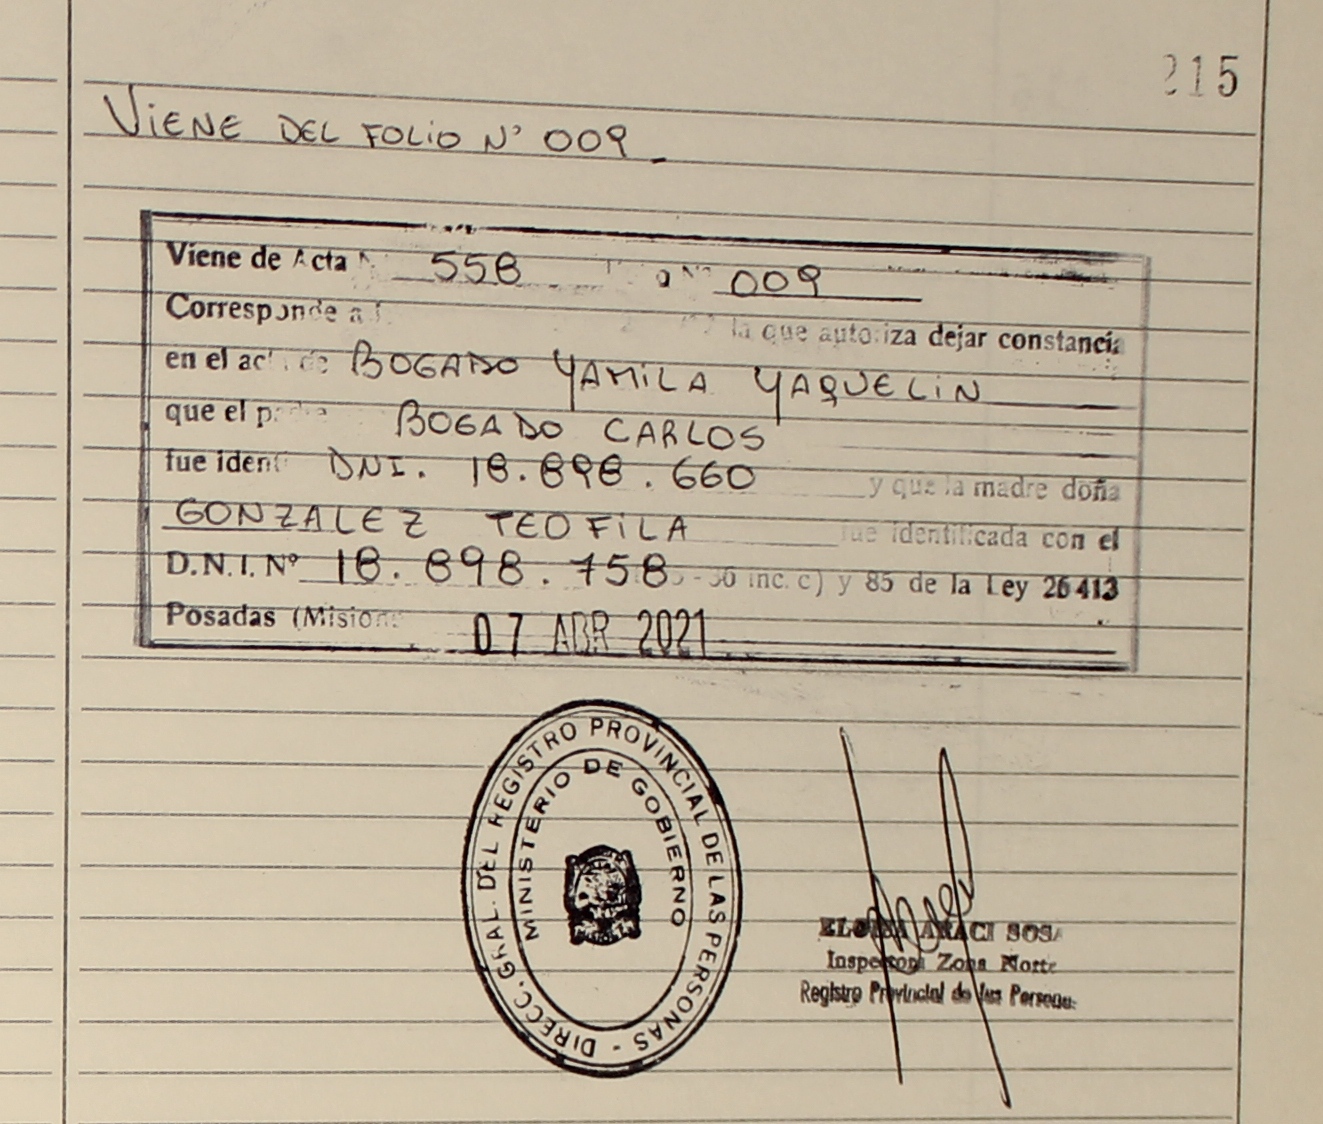 215
VIENE DEL FOLIO N° 009.
Viene de Acta N 558 o N° 009
Corresponde a la que autoriza dejar constancia
en el acta de BOGADO YAMILA YAQUELIN
que el padre BOGADO CARLOS
fue ident DNI. 18.898.660 y que la madre doña
GONZALEZ TEOFILA fue identificada con el
D.N.I. N° 18.898.758 - 36 inc. c) y 85 de la Ley 26413
Posadas (Misiones 07 ABR 2021
DIRECC. GRAL. DEL REGISTRO PROVINCIAL DE LAS PERSONAS -
MINISTERIO DE GOBIERNO
ELOISA ARACI SOSA
Inspectora Zona Norte
Registro Provincial de las Personas